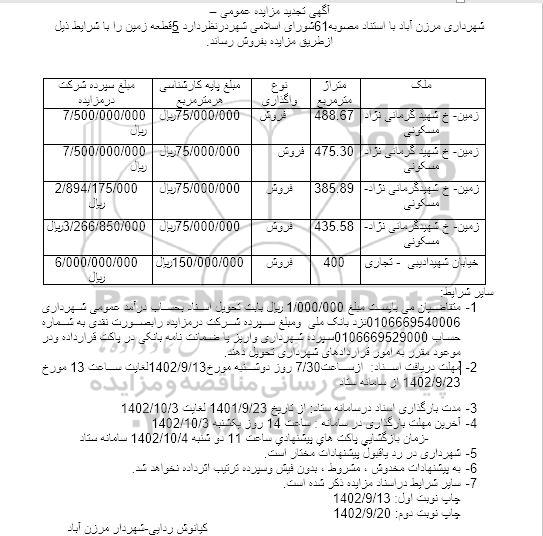 آگهی تجدید مزایده عمومی –
شهرداری مرزن آباد با استناد مصوبه61شورای اسلامی شهردرنظردارد 5قطعه زمین را با شرایط ذیل
ازطریق مزایده بفروش رساند.
ملک متراژ مترمربع نوع واگذاری مبلغ پایه کارشناسی هرمترمربع مبلغ سپرده شرکت درمزایده
زمین- خ شهید گرمانی نژاد- مسکونی 488.67 فروش 75/000/000ریال 7/500/000/000 ریال
زمین- خ شهید گرمانی نژاد- مسکونی 475.30 فروش 75/000/000ریال 7/500/000/000 ریال
زمین- خ شهیدگرمانی نژاد- مسکونی 385.89 فروش 75/000/000ریال 2/894/175/000 ریال
زمین- خ شهیدگرمانی نژاد- مسکونی 435.58 فروش 75/000/000ریال 3/266/850/000ریال
خیابان شهیدادیبی - تجاری 400 فروش 150/000/000ریال 6/000/000/000 ریال
سایر شرایط:
1- متقاضیان می بایست مبلغ 1/000/000 ریال بابت تحویل اسناد بحساب درآمد عمومی شهرداری
0106669540006نزد بانک ملی ومبلغ سپرده شرکت درمزایده رابصورت نقدی به شماره
حساب 0106669529000سپرده شهرداری واریز یا ضمانت نامه بانکی در پاکت قرارداده ودر
موعود مقرر به امور قراردادهای شهرداری تحویل دهند.
2-مهلت دریافت اسناد: ازساعت7/30 روز دوشنبه مورخ1402/9/13لغایت ساعت 13 مورخ
1402/9/23 از سامانه ستاد
3- مدت بارگذاری اسناد درسامانه ستاد: از تاریخ 1401/9/23 لغایت 1402/10/3
4- آخرین مهلت بارگذاری در سامانه : ساعت 14 روز یکشنبه 1402/10/3
-زمان بازگشایي پاکت هاي پیشنهادي ساعت 11 دو شنبه 1402/10/4 سامانه ستاد
5- شهرداری در رد یاقبول پیشنهادات مختار است.
6- به پیشنهادات مخدوش ، مشروط ، بدون فیش وسپرده ترتیب اثرداده نخواهد شد.
7- سایر شرایط دراسناد مزایده ذکر شده است.
چاپ نوبت اول: 1402/9/13
چاپ نوبت دوم: 1402/9/20
کیانوش ردایی-شهردار مرزن آباد